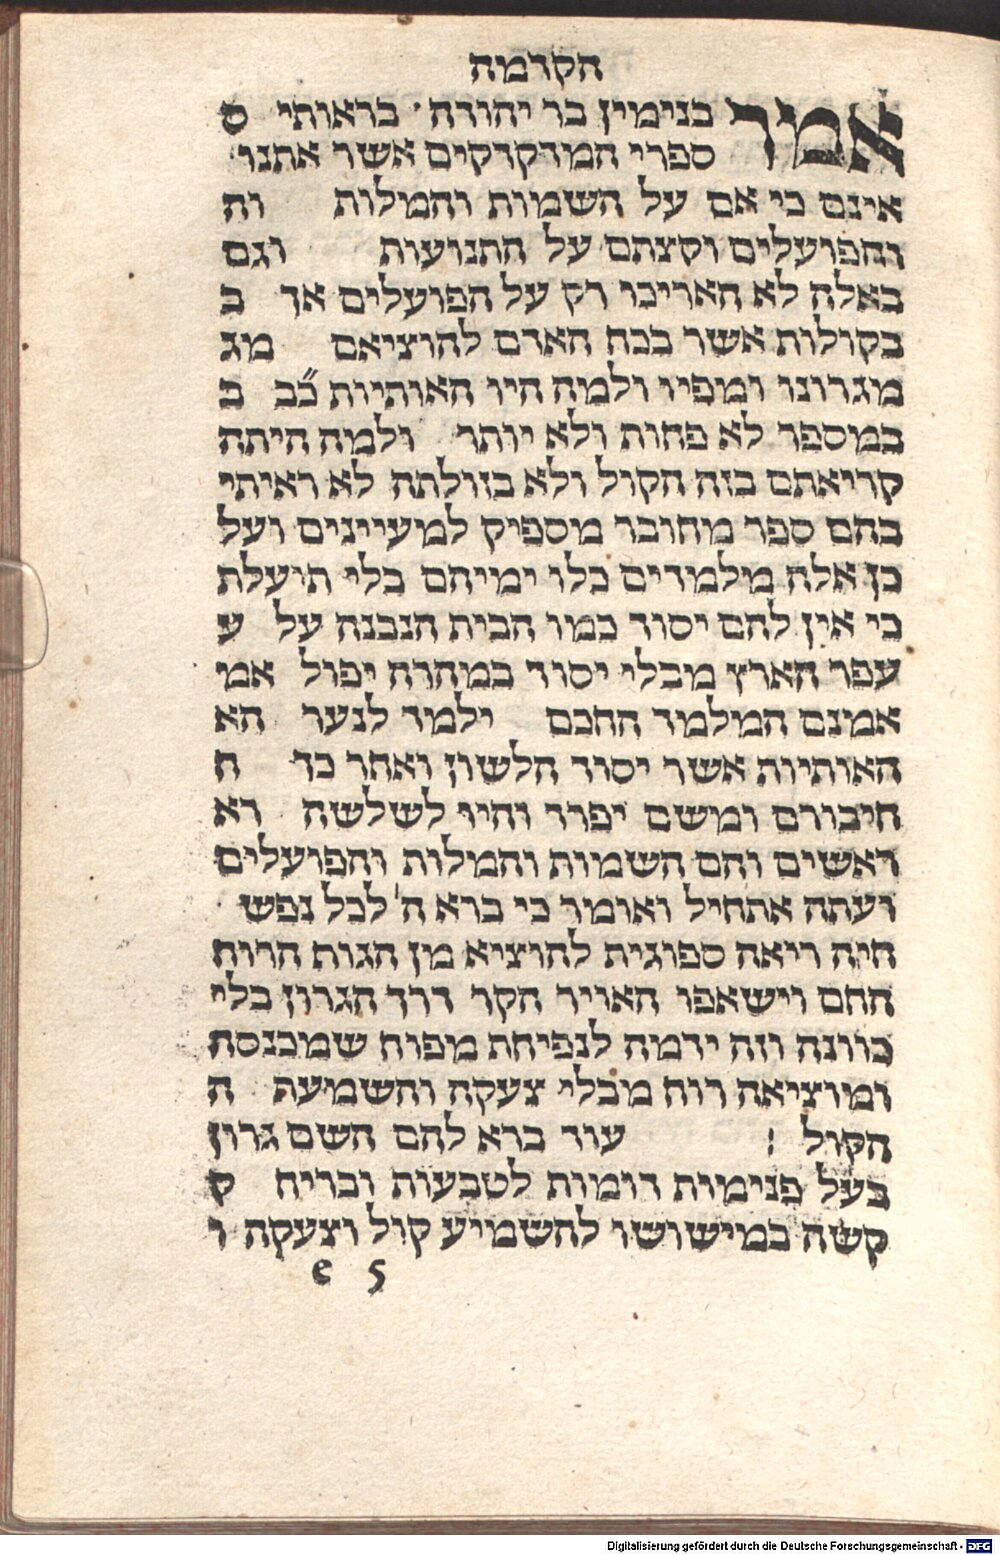 הקדמה
אמר בנימין בר יהודה · בראותי ס
ספרי המדקדקים אשר אתנו
אינם כי אם על השמות והמלות וה
והפועלים וקצתם על התנועות וגם
באלה לא האריכו רק על הפועלים אך ב
בקולות אשר בכח האדם להוציאם מג
מגרונו ומפיו ולמה היו האותיות כ״ב ב
במספר לא פחות ולא יותר ולמה היתה
קריאתם בזה הקול ולא בזולתה לא ראיתי
בהם ספר מחובר מספיק למעיינים ועל
כן אלה מלמדים כלו ימיהם בלי תועלת
כי אין להם יסוד כמו הבית הנבנה על ע
עפר הארץ מבלי יסוד במהרה יפול אמ
אמנם המלמד החכם ילמד לנער הא
האותיות אשר יסוד הלשון ואחר כך ח
חיבורם ומשם יפרד והיו לשלשה רא
ראשים והם השמות והמלות והפועלים
ועתה אתחיל ואומר כי ברא ה' לכל נפש
חיה ריאה ספוגית להוציא מן הגות הרוח
החם וישאפו האויר הקר דרך הגרון בלי
כוונה וזה ידמה לנפיחת מפוח שמכנסת
ומוציאה רוח מבלי צעקה והשמיעת ה
הקול : עוד ברא להם השם גרון
בעל פנימות דומות לטבעות ובריח ק
קשה במישושו להשמיע קול וצעקה ו
e 5
Digitalisierung gefördert durch die Deutsche Forschungsgemeinschaft - DFG